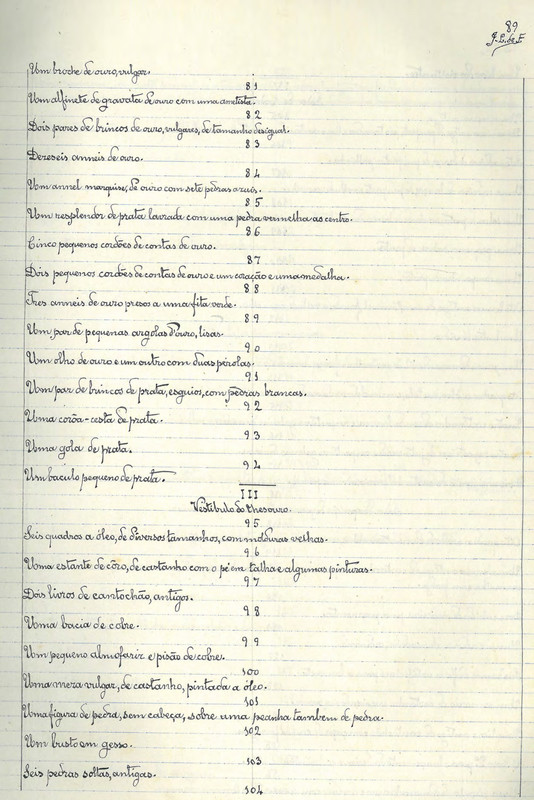 89
J. L. de F.
Um broche de ouro, vulgar.
81
Um alfinete de gravata de ouro com uma ametista.
82
Dois pares de brincos de ouro, vulgares, de tamanho desigual.
83
Dezeseis anneis de ouro.
84
Um annel marquise, de ouro com sete pedras azues.
85
Um resplendor de prata lavrada com uma pedra vermelha ao centro.
86
Cinco pequenos cordões de contas de ouro.
87
Dois pequenos cordões de contas de ouro e um coração e uma medalha.
88
Tres anneis de ouro presos a uma fita verde.
89
Um par de pequenas argolas d'ouro, lisas.
90
Um olho de ouro e um outro com duas pérolas.
91
Um par de brincos de prata, esguios, com pedras brancas.
92
Uma corôa-cesta de prata.
93
Uma gola de prata.
94
Um baculo pequeno de prata.
III
Vestibulo do thesouro.
95
Seis quadros a óleo, de diversos tamanhos, com molduras velhas.
96
Uma estante de côro, de castanho com o pé em talha e algumas pinturas.
97
Dois livros de cantochão, antigos.
98
Uma bacia de cobre.
99
Um pequeno almofariz e pisão de cobre.
100
Uma meza vulgar, de castanho, pintada a óleo.
101
Uma figura de pedra, sem cabeça, sobre uma peanha tambem de pedra.
102
Um busto em gesso.
103
Seis pedras soltas, antigas.
104